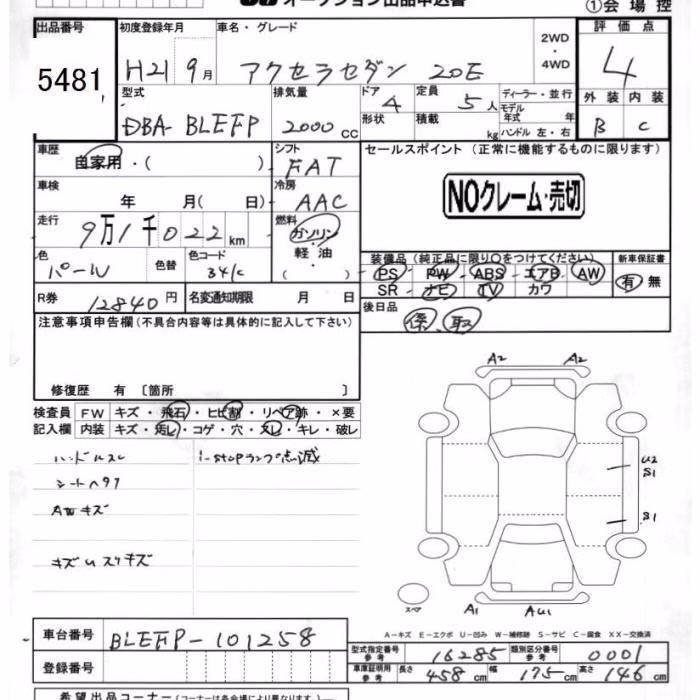 オークション出品申込書
①会場控
出品番号
5481
初度登録年月
H21 9月
車名・グレード
アクセラセダン 20E
2WD・4WD
評価点
4
外装 内装
B C
型式
DBA- BLEFP
排気量
2000 cc
ドア 4
形状
定員 5人
積載 kg
ディーラー・並行
モデル年式 年
ハンドル 左・右
車歴
自家用・( )
シフト
FAT
車検
年 月( 日)
冷房
AAC
走行
9万1千022 km
燃料
ガソリン・軽油・( )
色
パール
色替
色コード
34K
R券
12840円
名変通知期限 月 日
セールスポイント(正常に機能するものに限ります)
NOクレーム・売切
装備品(純正品に限り○をつけてください)
PS PW ABS エアB AW
SR ナビ TV カワ
新車保証書
有 無
後日品
保、取
注意事項申告欄(不具合内容等は具体的に記入して下さい)
修復歴 有〔箇所 〕
検査員記入欄
FW キズ・飛石・ヒビ割・リペア跡・×要
内装 キズ・汚レ・コゲ・穴・スレ・キレ・破レ
ハンドルスレ
i-stopランプ点滅
シートヘタリ
AWキズ
キズ スリキズ
A2 A2
U2
S1
S1
スペア
A1 AU1
A-キズ E-エクボ U-凹み W-補修跡 S-サビ C-腐食 XX-交換済
車台番号
BLEFP-101258
登録番号
型式指定番号 参考 16285
類別区分番号 参考 0001
車庫証明用 参考 長さ 458 cm 幅 175 cm 高さ 146 cm
希望出品コーナー(コーナーは各会場により異なります)